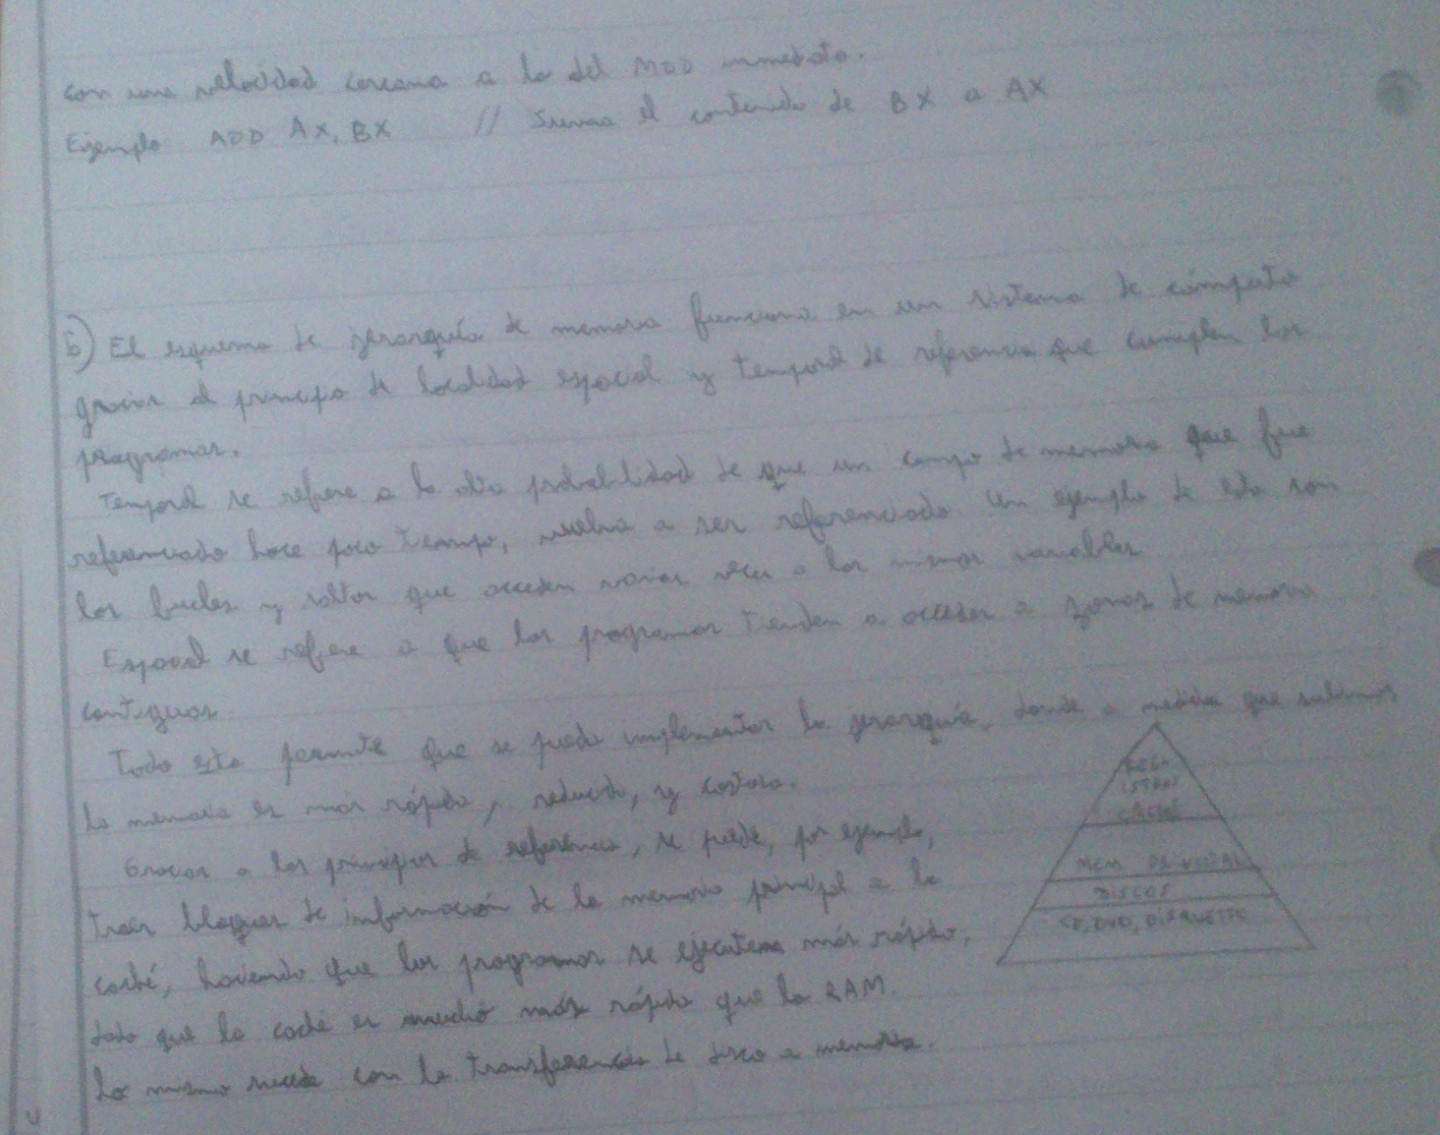 con una velocidad cercana a la del MDD inmediato.
Ejemplo ADD AX, BX // Suma el contenido de BX a AX
6) El esquema de jerarquía de memoria funciona en un sistema de cómputo
gracias al principio de localidad espacial y temporal de referencia que cumplen los
programas.
Temporal se refiere a la alta probabilidad de que un campo de memoria que fue
referenciado hace poco tiempo, vuelva a ser referenciado. Un ejemplo de esto son
los bucles y saltos que acceden varias veces a las mismas variables
Espacial se refiere a que los programas tienden a acceder a zonas de memoria
contiguas.
Todo esto permite que se pueda implementar la jerarquía, donde a medida que subimos
la memoria es más rápida, reducida, y costosa.
Gracias a los principios de referencia, se puede, por ejemplo,
traer bloques de información de la memoria principal a la
caché, haciendo que los programas se ejecuten más rápido,
dado que la caché es mucho más rápida que la RAM.
Lo mismo sucede con la transferencia de disco a memoria.
REGI
STROS
CACHÉ
MEM PRINCIPAL
DISCOS
CD, DVD, DISKETTE